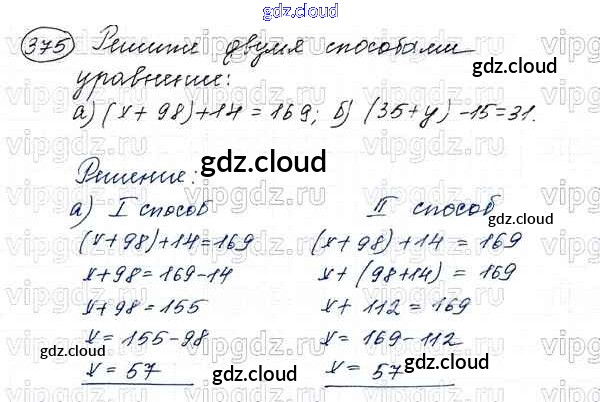 gdz.cloud
375 Решите двумя способами
gdz.cloud
уравнение:
а) (x + 98) + 14 = 169; б) (35 + y) - 15 = 31.
gdz.cloud
Решение:
а) I способ II способ
gdz.cloud
(x + 98) + 14 = 169 (x + 98) + 14 = 169
x + 98 = 169 - 14 x + (98 + 14) = 169
x + 98 = 155 x + 112 = 169
x = 155 - 98 x = 169 - 112
gdz.cloud gdz.cloud
x = 57 x = 57
gdz.cloud
vipgdz.ru